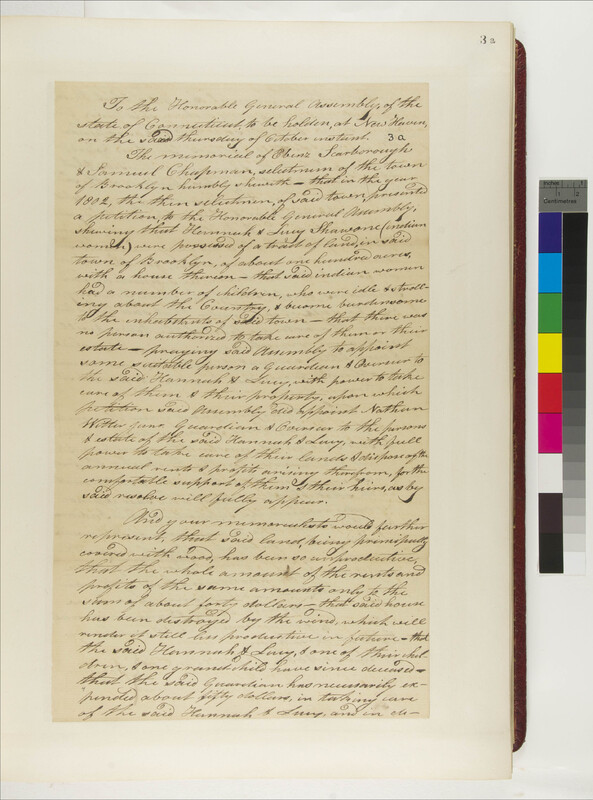 3a
To the Honorable General Assembly, of the
state of Connecticut, to be holden, at New Haven,
on the second thursday of October instant. 3a
The memorial of Ebenr Scarborough
& Samuel Chapman, selectmen of the town
of Brooklyn humbly sheweth – that in the year
1802, the then selectmen, of said town, presented
a petition, to the Honorable General Assembly,
shewing that Hannah & Lucy Shawson (indian
women,) were possessed of a tract of land, in said
town of Brooklyn, of about one hundred acres,
with a house thereon – that said indian women
had a number of children, who were idle & stroll-
ing about the Country, & become burdensome
to the inhabitants of said town – that there was
no person authorized to take care of them or their
estate – praying said Assembly to appoint
some suitable person a Guardian & Overseer to
the said Hannah & Lucy, with power to take
care of them & their property, upon which
petition said Assembly did appoint Nathan
Witter junr. Guardian & Overseer to the persons
& estate of the said Hannah & Lucy, with full
power to take care of their lands & dispose of the
annual rents & profits arising therefrom, for the
comfortable support of them & their heirs, as by
said resolve will fully appear.
And your memorialists would further
represent, that said land, being principally
covered with wood, has been so unproductive,
that the whole amount of the rents and
profits of the same amounts only to the
sum of about forty dollars – that said house
has been distroyed by the wind, which will
render it still less productive in future – that
the said Hannah & Lucy, & one of their chil-
dren, & one grandchild have since deceased –
that the said Guardian has necessarily ex-
pended about fifty dollars, in taking care
of the said Hannah & Lucy, and in de-
Inches
Centimetres
1
2